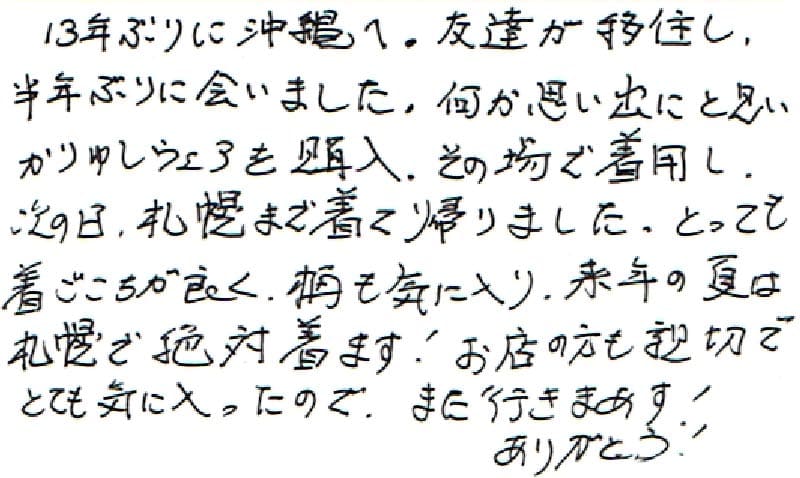 13年ぶりに沖縄へ。友達が移住し、
半年ぶりに会いました。何か思い出にと思い
かりゆしウェアを購入。その場で着用し、
次の日、札幌まで着て帰りました。とっても
着ごこちが良く、柄も気に入り、来年の夏は
札幌で絶対着ます！お店の方も親切で
とても気に入ったので、また行きまぁす！
ありがとう！